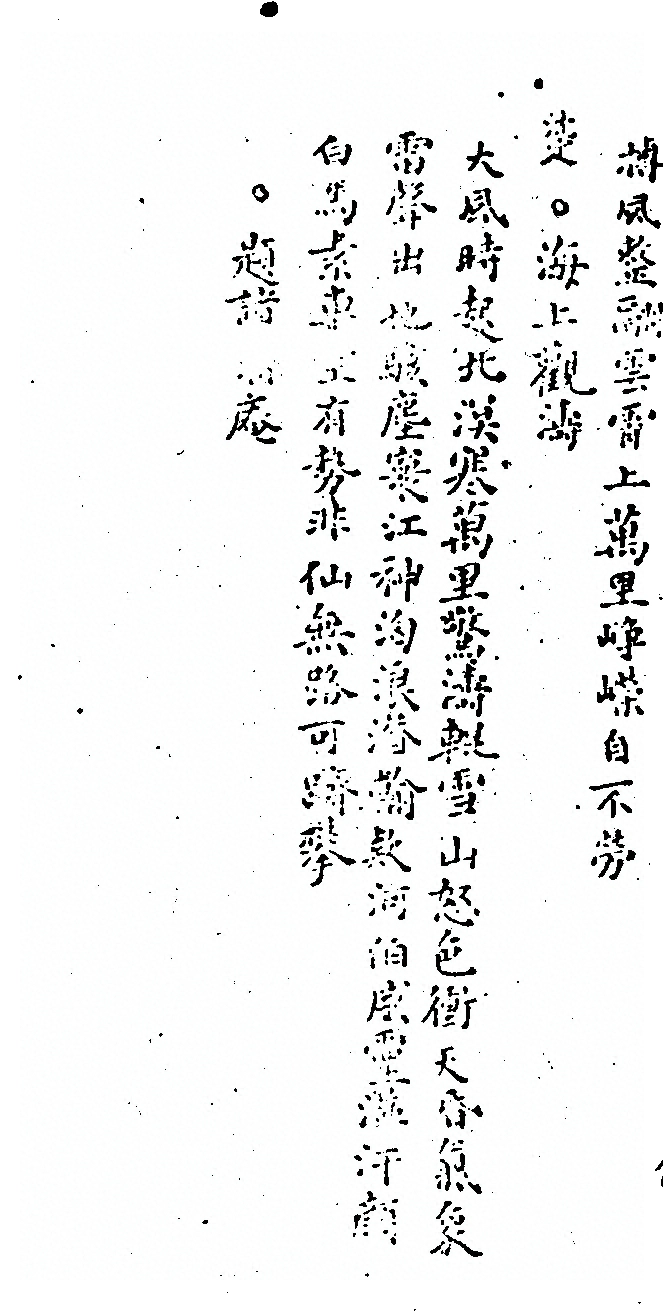 摶風整翮雲霄上萬里崢嶸自不勞
楚。海上觀濤
大風時起北漠寒萬里驚濤輥雪山怒色衝天昏氣象
雷聲出地駭塵寰江神洶浪潛輸款河伯威靈汗顏
白馬素車正有勢非仙無路可躋攀
。題詩庵